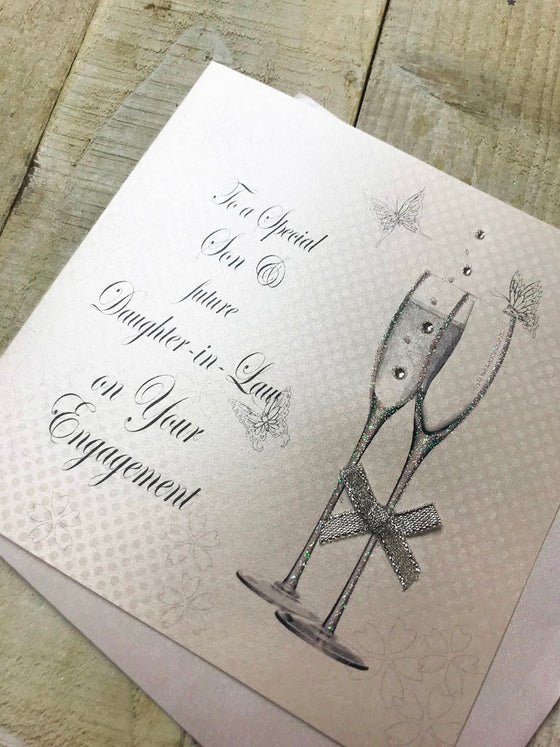 To a Special
Son &
future
Daughter-in-Law
on Your
Engagement